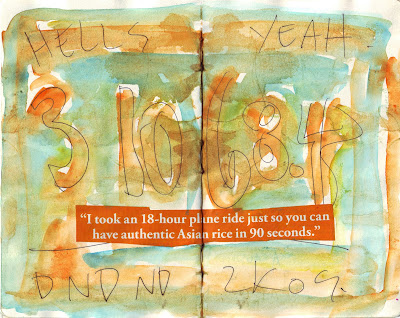 HELLS YEAH
3 10 68.4
“I took an 18-hour plane ride just so you can
have authentic Asian rice in 90 seconds.”
DNDND 2K09.